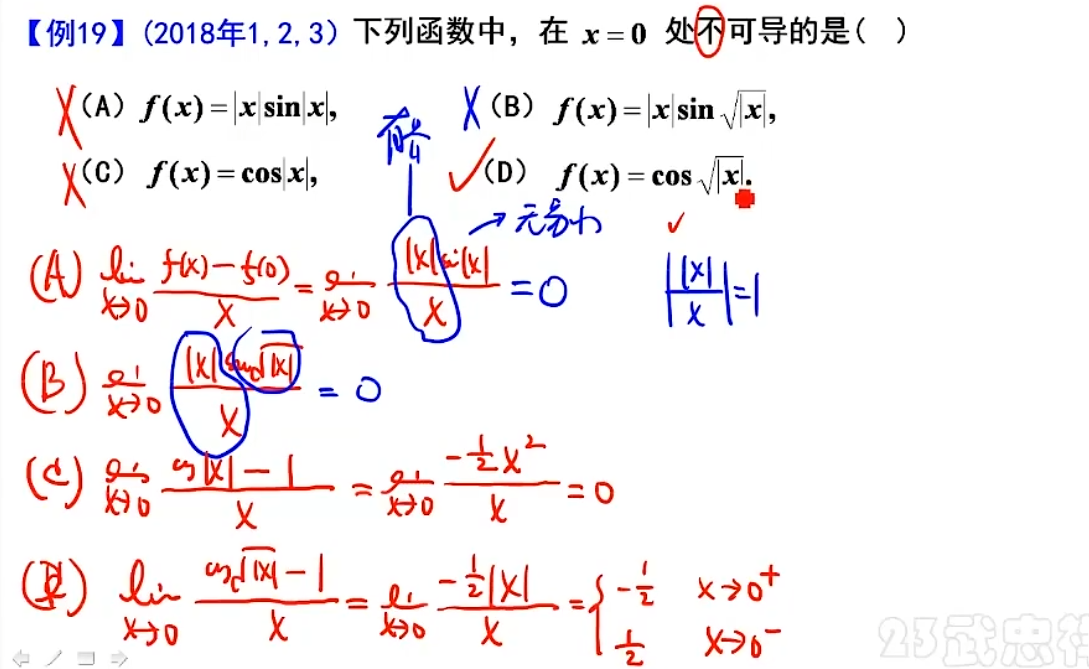 【例19】(2018年1,2,3) 下列函数中，在 x=0 处不可导的是( )
X (A) f(x)=|x|sin|x|, X (B) f(x)=|x|sin√|x|,
X (C) f(x)=cos|x|, ✓ (D) f(x)=cos√|x|.
有界 → 无穷小 ✓
(A) lim x→0 (f(x)-f(0))/x = lim x→0 |x|sin|x|/x = 0 ||x|/x|=1
(B) lim x→0 |x|sin√|x|/x = 0
(C) lim x→0 (cos|x|-1)/x = lim x→0 (-1/2 x²)/x = 0
(D) lim x→0 (cos√|x|-1)/x = lim x→0 (-1/2|x|)/x = { -1/2 x→0⁺
1/2 x→0⁻
23武忠祥